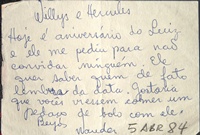 Willys e Hercules
Hoje é aniversário do Luiz
e ele me pediu para não
convidar ninguém. Ele
quer saber quem de fato
lembra da data. Gostaria
que vocês viessem comer um
pedaço de bolo com ele.
Beijos
5 ABR 84